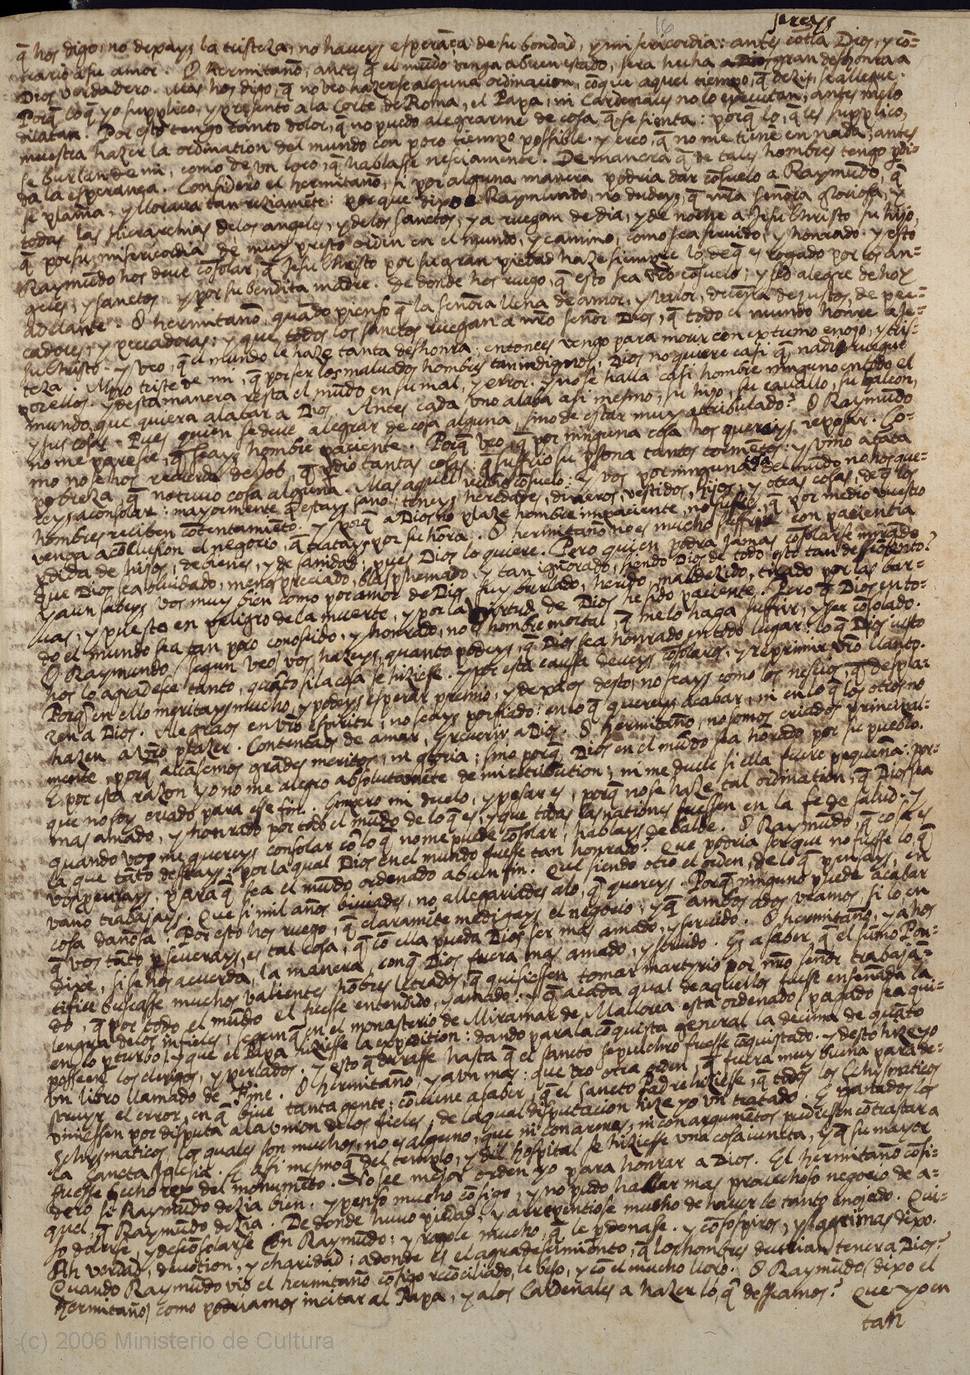 sereys
16
q̃ hos digo, no dexays la tristeza, no haueys esperãça de su bondad, y misericordia: antes cõtra Dios, y cõ-
trario a su amor. O hermitano, antes q̃ el mundo venga a buen estado, sera hecha a Dios gran deshonra a
Dios verdadero. Mas hos digo, q̃ no veo hazerse alguna ordinacion, cõ q̃ aquel tiempo, q̃ dezis, se allegue.
Porq̃ lo q̃ yo supplico, y presento a la Corte de Roma, el Papa, ni Cardenales no lo executan, antes me lo
dilatan. Por esto tengo tanto dolor, q̃ no puedo alegrarme de cosa, q̃ se sienta: porq̃ lo, q̃ les supplico,
muestra hazer la ordination del mundo con poco tiempo possible. y creo, q̃ no me tiene en nada; antes
se burlan de mi, como de vn loco, q̃ hablasse nesciamente. De manera q̃ de tales hombres tengo p̃di-
da la esperança. Considero el hermitano, si por alguna manera podria dar cõsuelo a Raymũdo, q̃
se plañia, y lloraua tan reziamẽte: por que dixo Raymundo, no dudeys, q̃ nr̃a señora gloriosa, y
todas las Hierarchias de los angeles, y de los sanctos, ya ruegan de dia, y de noche a Jesu Christo su hijo,
q̃ por su misericordia de muy presto ordin en el mundo, y camino, como sea seruido, y honrado. y esto
Raymũdo hos deue cõsolar, q̃ Jesu Christo por su gran piedad haze siempre lo de q̃ es rogado por los an-
geles, y sanctos. y por su bendita madre. De donde hos ruego, q̃ esto sea vr̃o cõsuelo: y sed alegre de hoy
adelante. O hermitano, quãdo pienso q̃ la señora llena de amor, y valor, de justos, de pec-
cadores, y peccadoras: y que todos los sanctos ruegan a nr̃o señor Dios, q̃ todo el mundo honre a Je-
su Christo. y veo, q̃ el mundo le haze tanta deshonra; entonces vengo para morir con extremo enojo, y tris-
teza. Muy triste de mi, q̃ por ser los maluados hombres tan indignos, Dios no quiere casi q̃ nadi ruegue
por ellos. y desta manera resta el mũdo en su mal, y error. y no se halla casi hombre ninguno en todo el
mundo, que quiera alabar a Dios. Antes cada vno alaba asi mesmo, su hijo, su cauallo, su halcon,
y sus cosas. Pues quien se deue alegrar de cosa alguna, sino de estar muy attribulado? O Raymũdo
no me paresce, q̃ seays hombre paciente. Porq̃ veo, q̃ por ninguna cosa hos quereys reposar. Co-
mo no se hos recuerda de Job, q̃ p̃dio tantas cosas, q̃ suffrio su p̃sona tantos tormẽtos. y vino a tata
pobreza, q̃ no tuuo cosa alguna. Mas aquel recibio cõsuelo: y vos por ninguna cosa del mũdo, no hos que-
reys aconsolar: mayormente q̃ estays sano: teneys heredades, dineros, vestidos, hijos, y otras cosas, de q̃ los
hombres reciben cõtentamiẽto. y porq̃ a Dios no plaze hombre impaciente, no suffrir, q̃ por medio vuestro
venga a cõclusion el negocio, q̃ tratays por su hõra. O hermitano, no es mucho suffrir con pacientia
p̃dida de hijos, de bienes, y de sanidad; pues Dios lo quiere. Pero quien podra jamas cõsolarse mirãdo
que Dios sea oluidado, menospreciado, blasphemado, y tan ignorado, siendo Dios de todo esto tan descontento?
y aun sabeys vos muy bien como por amor de Dios fuy burlado, herido, maldezido, tirado por las bar-
uas, y puesto en peligro de la muerte, y por la virtud de Dios he sido paciente. Pero q̃ Dios en to-
do el mundo sea tan poco conoscido, y honrado, no q̃ hombre mortal, q̃ me lo haga suffrir, y ser cõsolado.
O Raymundo, segun veo vos hazeys, quanto podeys, q̃ Dios sea honrado en todo lugar: lo q̃ Dios justo
hos lo agradesce tanto, quãto si la cosa se hiziesse. y por esta causa deueys cõsolaros, y reprimir vr̃o llanto.
Porq̃ en ello meritays mucho, y podeys esperar premio, y dexaos desto, no seays como los nescios, q̃ desplaz-
zen a Dios. Alegraos en vr̃o espiritu, no seays porfiado: en lo q̃ quereys acabar, ni en lo q̃ los otros no
hazen a vr̃o plazer. Contentaos de amar, y seruir a Dios. O hermitano, no somos criados principal-
mente, porq̃ alcãsemos grãdes meritos, ni gloria; sino porq̃ Dios en el mũdo sea hõrado por su pueblo.
E por esta razon yo no me alegro absolutamẽte de mi retribution; ni me duele si ella fuere pequeña: por-
que no soy criado para esse fin. Empero mi duelo, y pesar es, porq̃ no se haze tal ordination, q̃ Dios sea
mas amado, y honrado por todo el mũdo de lo q̃ es, y que todas las nationes fuessen en la fe de salud. y
quando vos me quereys consolar cõ lo q̃ no me puede cõsolar, hablays de balde. O Raymũdo, q̃ cosa es
la que tãto desseays; por la qual Dios en el mundo fuesse tan honrado? Que podria ser que no fuesse lo q̃
vos pensays, para q̃ sea el mũdo ordenado a buen fin. Que siendo otro el orden, de lo q̃ pensays, en
vano trabajays. Que si mil años biuiades, no allegariades alo, q̃ quereys. Porq̃ ninguno puede acabar
cosa dañosa. Por esto hos ruego, q̃ claramẽte me digays el negocio; y q̃ ambos ados veamos si lo en
q̃ vos tãto p̃seuerays, es tal cosa, q̃ cõ ella pueda Dios ser mas amado, y seruido. O hermitano, ya hos
dixe, si se hos acuerda, la manera, con q̃ Dios fuera mas amado, y seruido. Es a saber, q̃ el sũmo Pon-
tifice buscasse muchos valientes hõbres letrados, q̃ quisiessen tomar martyrio por nr̃o señor trabajã-
do, q̃ por todo el mũdo el fuesse entendido, y amado. y q̃ acada qual de aquellos fuesse enseñada la
lengua de los infieles, segun q̃ en el monasterio de Miramar de Mallorca esta ordenado, pagado sea qui-
en lo p̃turbo. y que el Papa hiziesse la expedition: dando para la cõquista general la decima de quãto
posseen los clerigos, y perlados. y esto q̃ durasse hasta q̃ el sancto sepulchro fuesse cõquistado. y desto hize yo
vn libro llamado de Fine. O hermitano, y aun mas: que veo otra orden, q̃ fuera muy buena para de-
struyr el error, en q̃ biue tanta gente; cõuiene asaber, q̃ el sancto padre hiziesse, q̃ todos los Schysmaticos
viniessen por disputa a la vnion de los fieles, de la qual disputacion hize yo vn tratado. E tratados los
Schysmaticos, los quales son muchos, no es alguno, que ni con armas, ni con argumẽtos pudiessen cõtrastar a
la sancta yglesia. E asi mesmo q̃ del templo, y del hospital se hiziesse vna cosa iuncta, y q̃ su mayor
fuesse hecho rey del monumẽto. No se mejor orden yo para honrar a Dios. El hermitano cõsi-
dero si Raymũdo dezia bien, y penso mucho cõsigo, y no pudo hallar mas prouechoso negocio de a-
quel, q̃ Raymũdo dezia. De donde huuo piedad, y arrepentiose mucho de hauer le tanto enojado. Qui-
so dolerse, y descõsolarse cõn Raymũdo; y rogole mucho, q̃ le p̃donase. y cõ sospiros, y lagrimas dixo.
Ah verdad, deuotion, y charidad: adonde es el agradescimiẽnto, q̃ los hombres deurian tener a Dios?
Cuando Raymũdo vio el hermitano cõsigo recõciliado, le beso, y cõ el mucho lloro. O Raymũdo (dixo el
hermitano) como podriamos incitar al Papa, y alos Cardenales a hazer lo, q̃ desseamos? Que yo en
tan
(c) 2006 Ministerio de Cultura